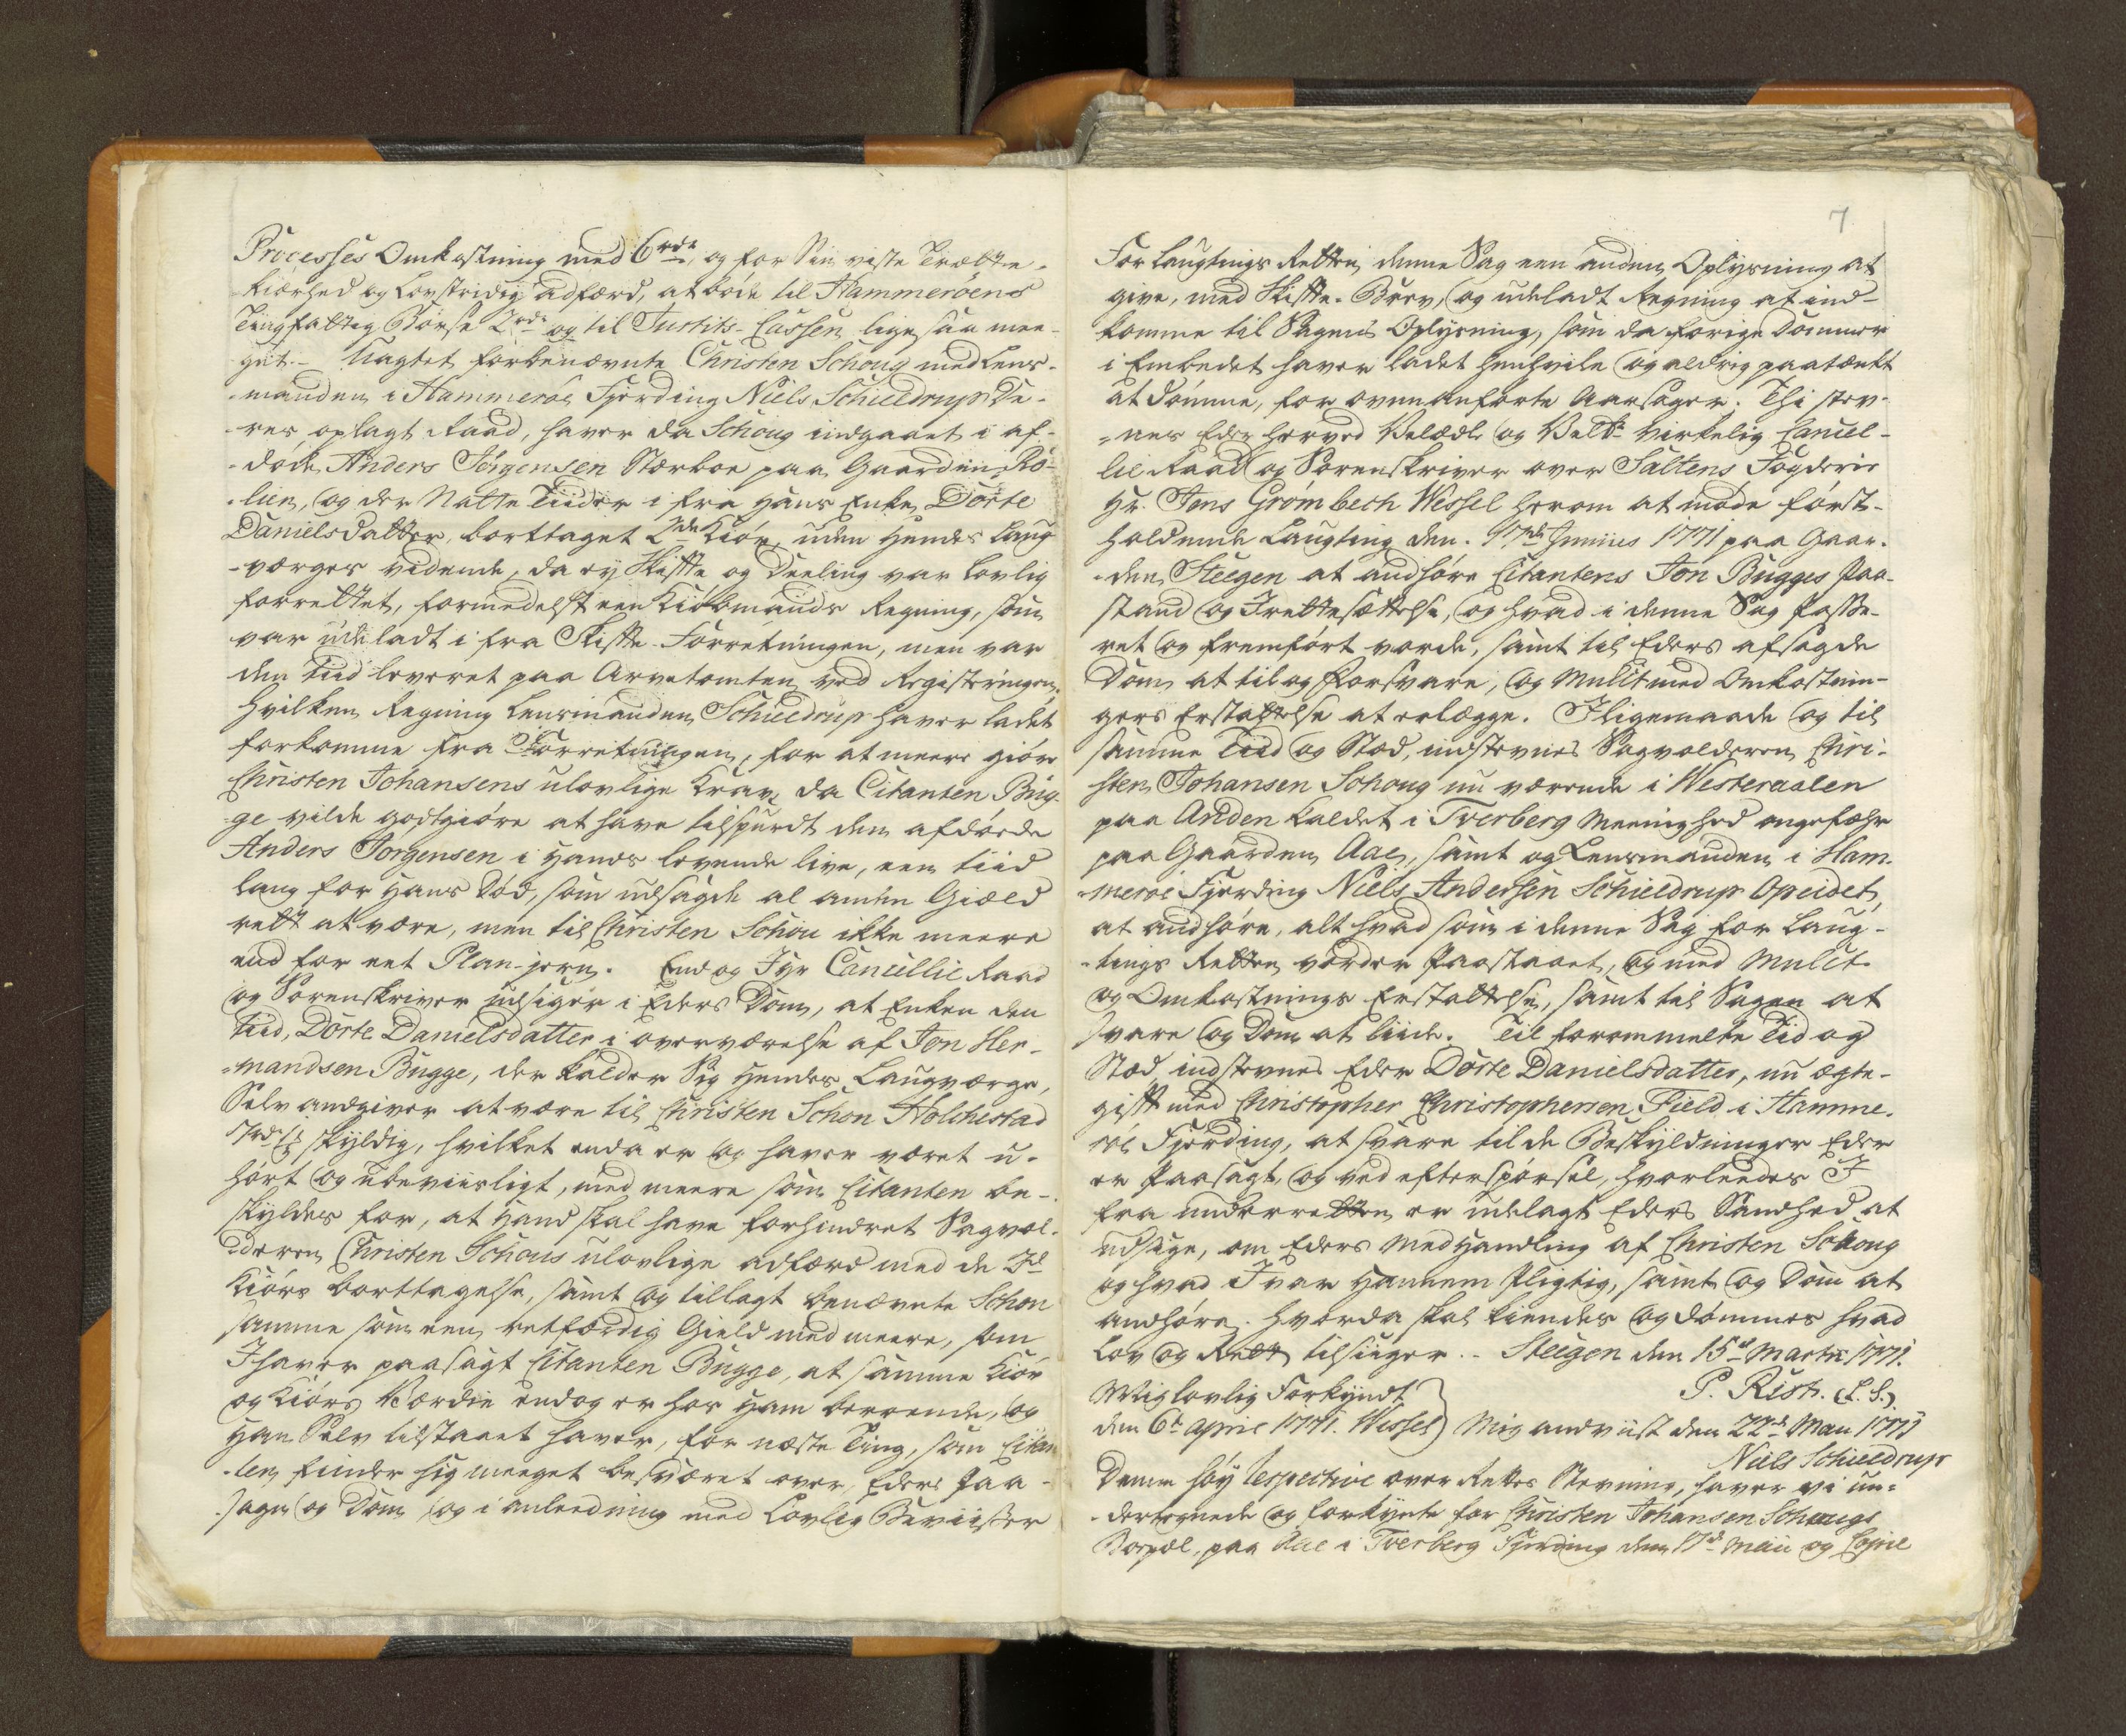 Processes Omkostning med 6 rdr, og for Sin viste Trætte-
kiærhed og Lovstridig adfærd, at böde til Hammeröens
Tingfattig Børse 2 rdr og til Justits-Cassen lige saa mee-
get. Uagtet forbenævnte Christen Schoug med Lens-
manden i Hammeröe Fjerding Niels Schieldrups De-
res oplagt Raad, haver da Schoug indgaaet i af-
döde Anders Jörgensen Stærboe paa Gaarden Rö-
lien, og der Natte Tiider i fra hans Enke Dorte
Danielsdatter, borttaget 2de Kiör, uden Hendes Laug-
værges vidende, da ey Skifte og Deeling var lovlig
forrettet, formedelst een Kiöbmands Regning, som
var udeladt i fra Skifte-Forretningen, men var
den Tiid leveret paa Arvetomten ved Registeringen,
hvilken Regning Lensmanden Schieldrup haver ladet
forkomme fra Forretningen, for at meere giöre
Christen Johansens ulovlige Krav, da Citanten Bug-
ge vilde godtgiöre at have tilspurdt den afdöde
Anders Jörgensen i Hands levende live, een tiid
lang for Hans Död, som udsagde al anden Giæld
rett at være, men til Christen Schou ikke meere
end for eet Plan-jern. End og Hr Cancellie Raad
og Sorenskriver udsiger i Eders Dom, at Enken den
Tiid, Dorte Danielsdatter i overværelse af Jon Her-
mandsen Bugge, der kalder Sig Hendes Laugværge,
Selv angiver at være til Christen Schou Holchestad
skyldig, hvilket enda er og haver været u-
hört og ubeviisligt, med meere som Citanten be-
skyldes for, at Hand skal have forhindret Sagvol-
deren Christen Schous ulovlige adfærd med de 2de
Kiörs borttagelse, samt og tillagt benævnte Schou
samme som een retfærdig Gield med meere, som
I haver paasagt Citanten Bugge, at samme Kiör
og Kiörs Værdie endog er hos Ham beroende, og
Han Selv tilstaaet haver, for næste Ting, som Citan-
ten finder sig meeget besværet over, Eders Paa-
sagn og Dom, og i anleedning med Lovlig Beviisser
7
For Laugtings Retten denne Sag een anden Oplysning at
give, med Skifte-Brev, og udeladt Regning at ind-
komme til Sagens Oplysning, som da forige Dommer
i Embedet haver ladet henhvile og aldrig paatænkt
at dömme, for ovenanförte Aarsager. Thi stev-
nes Eder herved Velædle og Velbr Virkelig Cancel-
lie Raad og Sorenskriver over Saltens Fogderie
Hr. Jens Grömbech Wessel herom at möde först-
holdende Laugting den 17de Junius 1771 paa Gaar-
den Steegen at andhöre Citantens Jon Bugges Paa-
stand og Irettesættelse, og hvad i denne Sag Passe-
ret og fremfört vorde, samt til Eders afsagde
Dom at til og forsvare, og Mulct med Omkostnin-
gers Erstattelse at erlægge. I ligemaade og til
samme Tiid og Stæd, indstevnes Sagvolderen Chri-
sten Johansen Schoug nu værende i Westeraalen
paa Anden kaldet i Tverberg Meenighed ongefæhr
paa Gaarden Aae, samt og Lensmanden i Ham-
meröe Fjerding Niels Andersen Schieldrup Opeidet,
at andhöre, alt hvad som i denne Sag for Laug-
tings Retten vorder Paastaaet, og med Mulct
og Omkostnings Erstattelse, samt til Sagen at
svare og Dom at liide. Til forommelte Tid og
Stæd indstevnes Eder Dorte Danielsdatter, nu ægte-
gift med Christopher Christophersen Field i Hamme-
röe Fjerding, at svare til de Beskyldninger Eder
er Paasagt, og ved efterspörsel, hvorleedes I
fra underretten er udlagt Eders Sandhed at
udsige, om Eders Medhandling af Christen Schoug
og hvad I var Hannem Pligtig, samt og Dom at
andhöre. hvorda skal kiendes og dömmes hvad
Lov og Rett tilsiiger. Steegen den 15de Martii 1771.
P. Rist. (L.S.)
Mig lovlig Forkyndt
den 6te April 1771. Wessel
Mig andviist den 22de Maii 1771
Niels Schieldrup
Denne höy respective over Rettes Stevning, haver vi un-
dertegnede og forkyndte for Christen Johansen Schougs
Bopæl, paa Aae i Tverberg Fjerding den 17de Maii og Copie